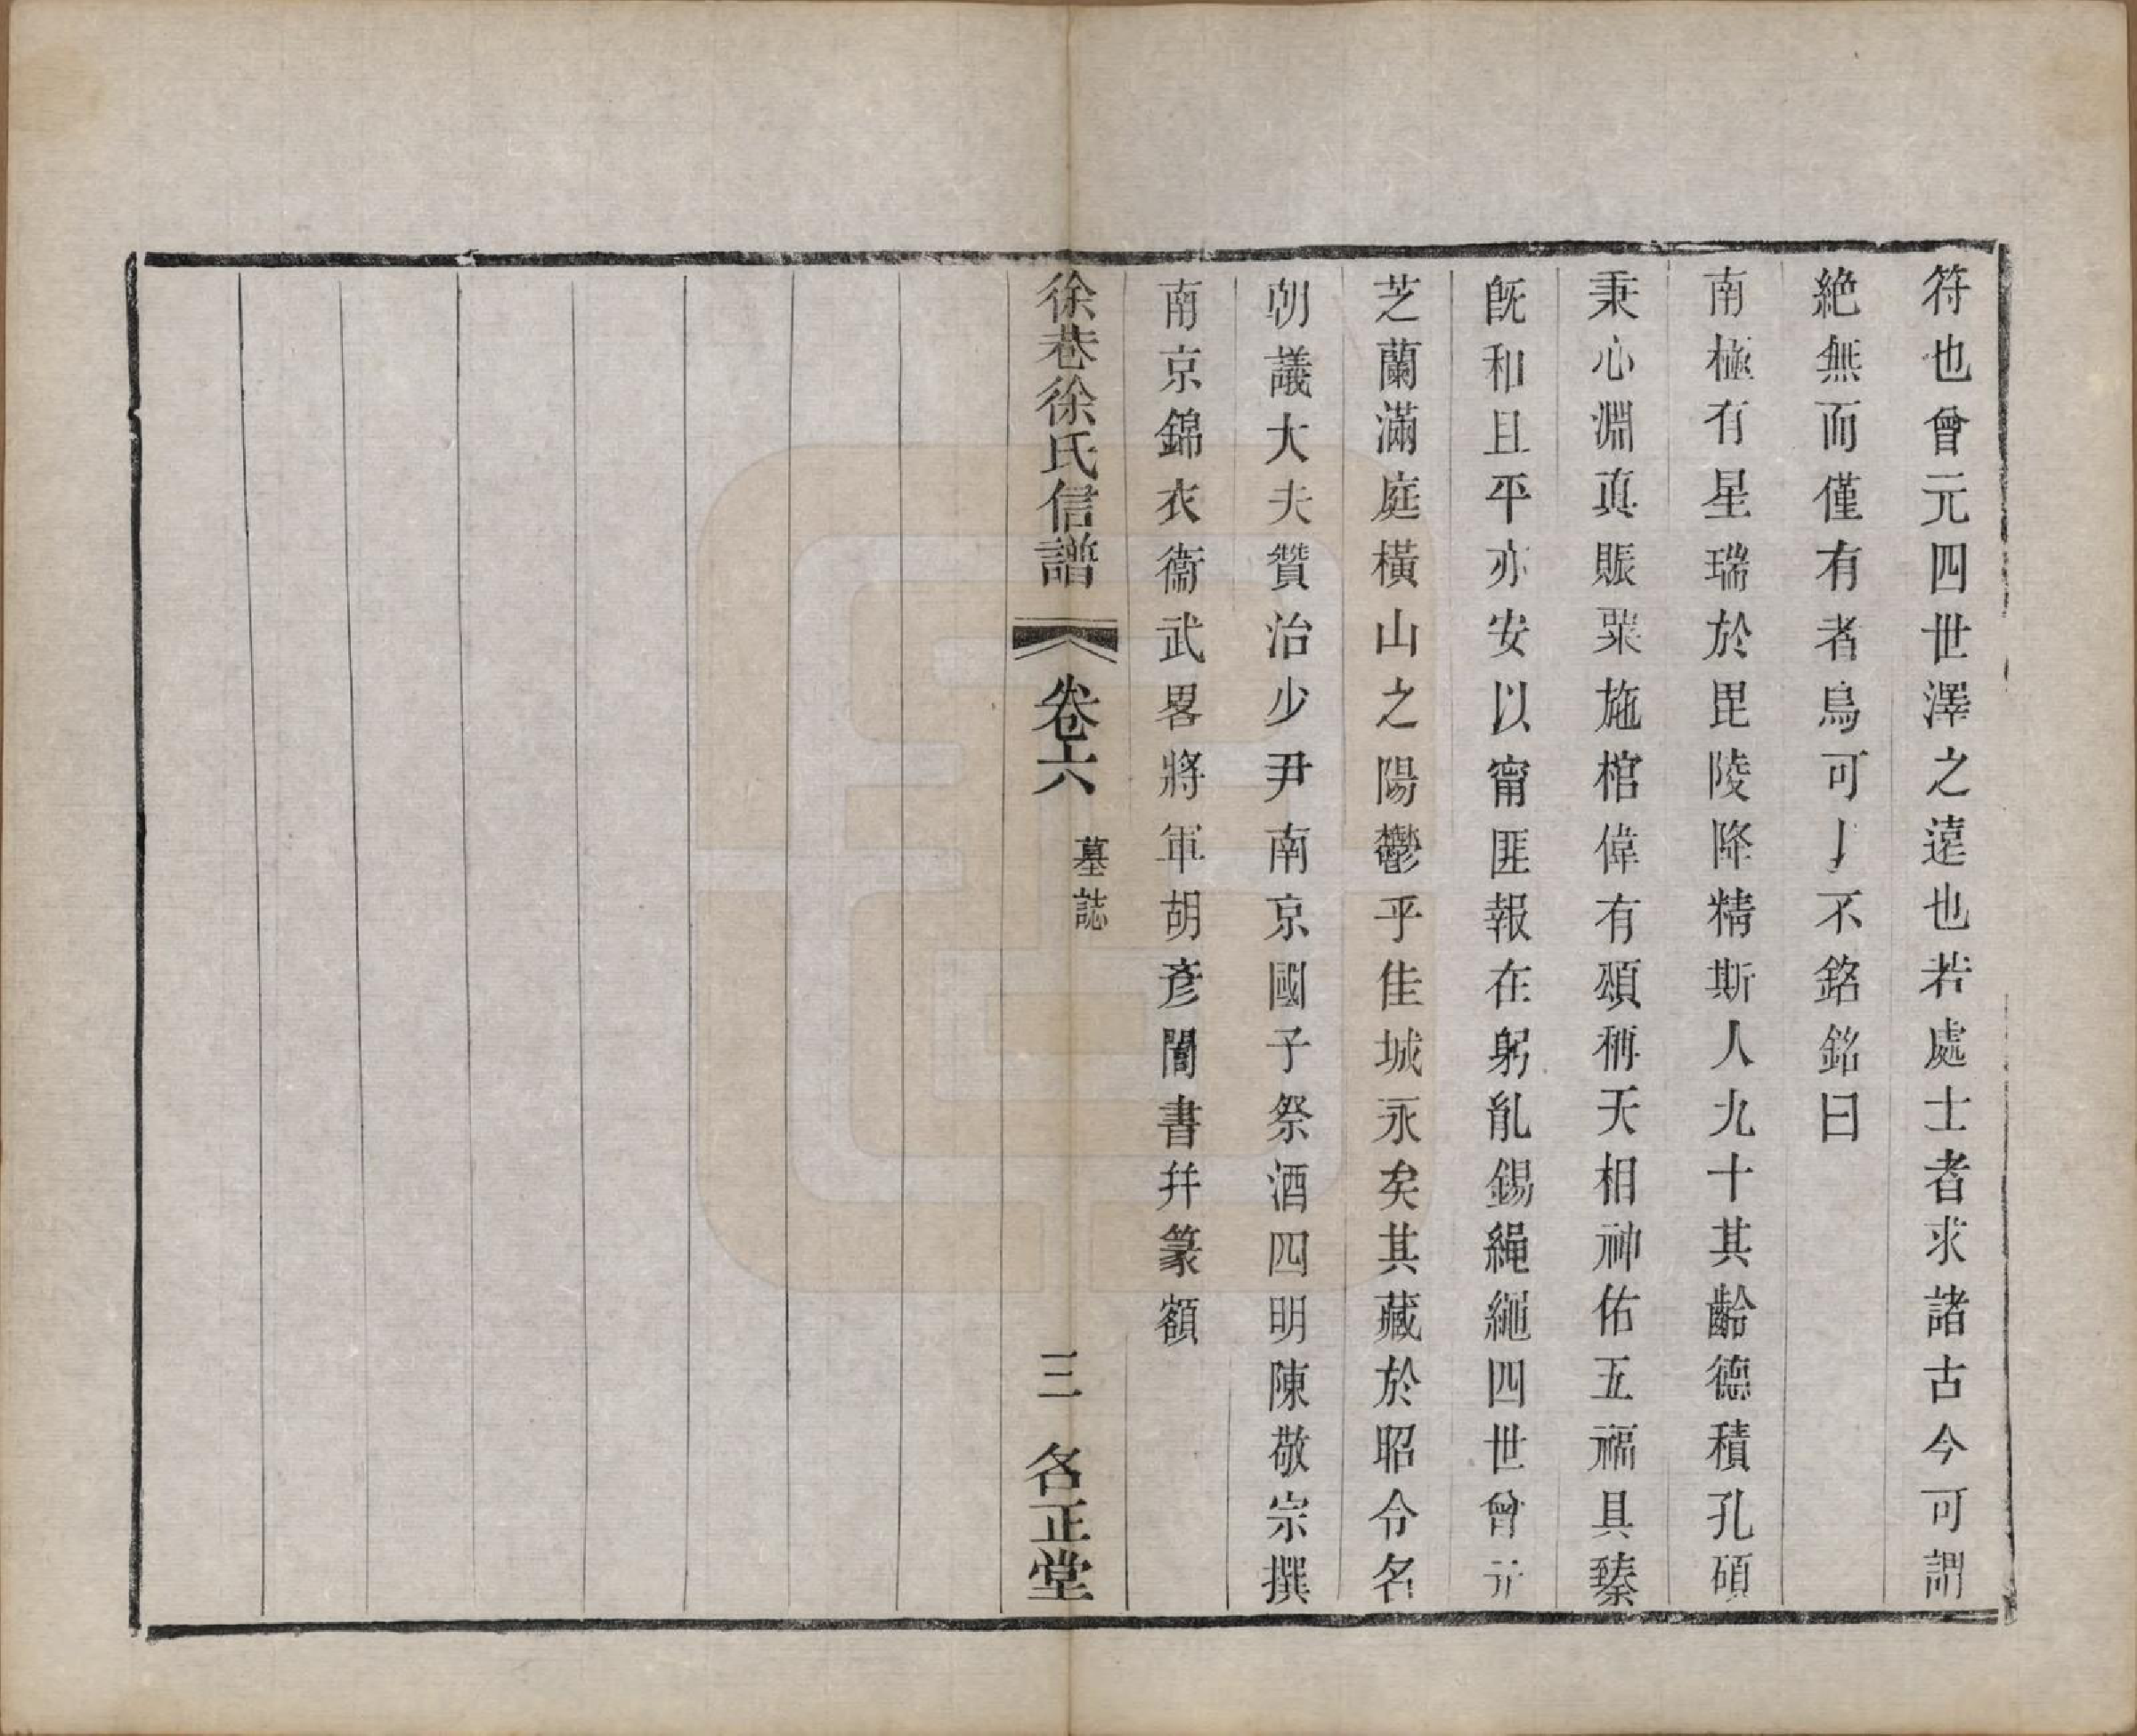 符也曾元四世澤之遠也若處士者求諸古今可謂
絶無而僅有者烏可不銘銘曰
南極有星瑞於毘陵降精斯人九十其齡德積孔碩
秉心淵真賑粟施棺偉有頌稱天相神佑五福具臻
旣和且平亦安以甯匪報在躬胤錫繩繩四世曾元
芝蘭滿庭橫山之陽鬱乎佳城永矣其藏於昭令名
朝議大夫贊治少尹南京國子祭酒四明陳敬宗撰
南京錦衣衞武畧將軍胡彥誾書幷篆額
徐巷徐氏信譜
卷六
墓誌
三
名正堂